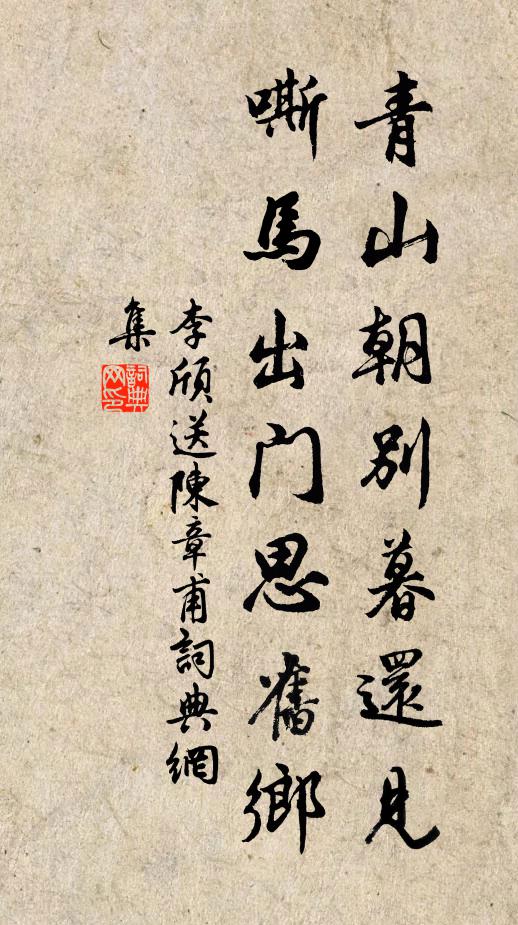 青山朝別暮還見
嘶馬出門思舊鄉
李頎送陳章甫詞典網
集
詞典網印